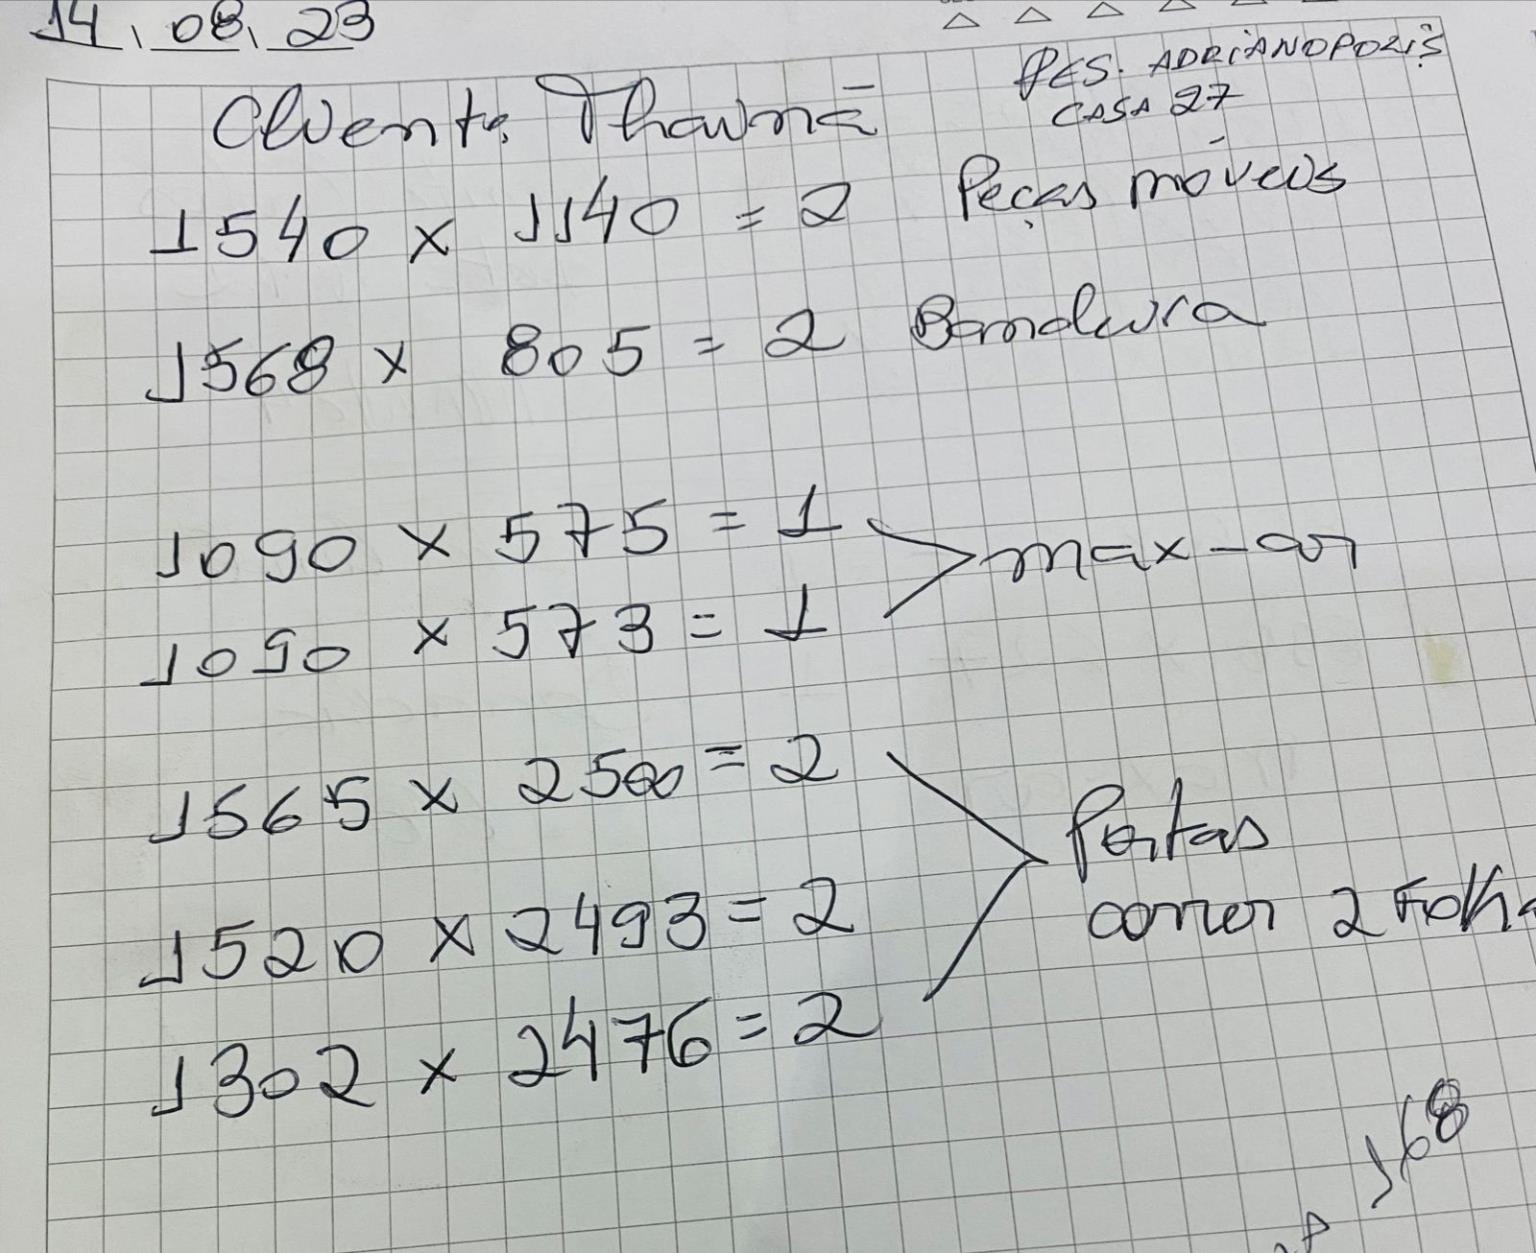 14, 08, 23
RES. ADRIANOPOLIS
CASA 27
Cliente Thainã
1540 x 1140 = 2 Peças móveis
1568 x 805 = 2 Bandeira
1090 x 575 = 1
max-ar
1090 x 573 = 1
1565 x 2500 = 2
Portas
correr 2 Folha
1520 x 2493 = 2
1302 x 2476 = 2
168